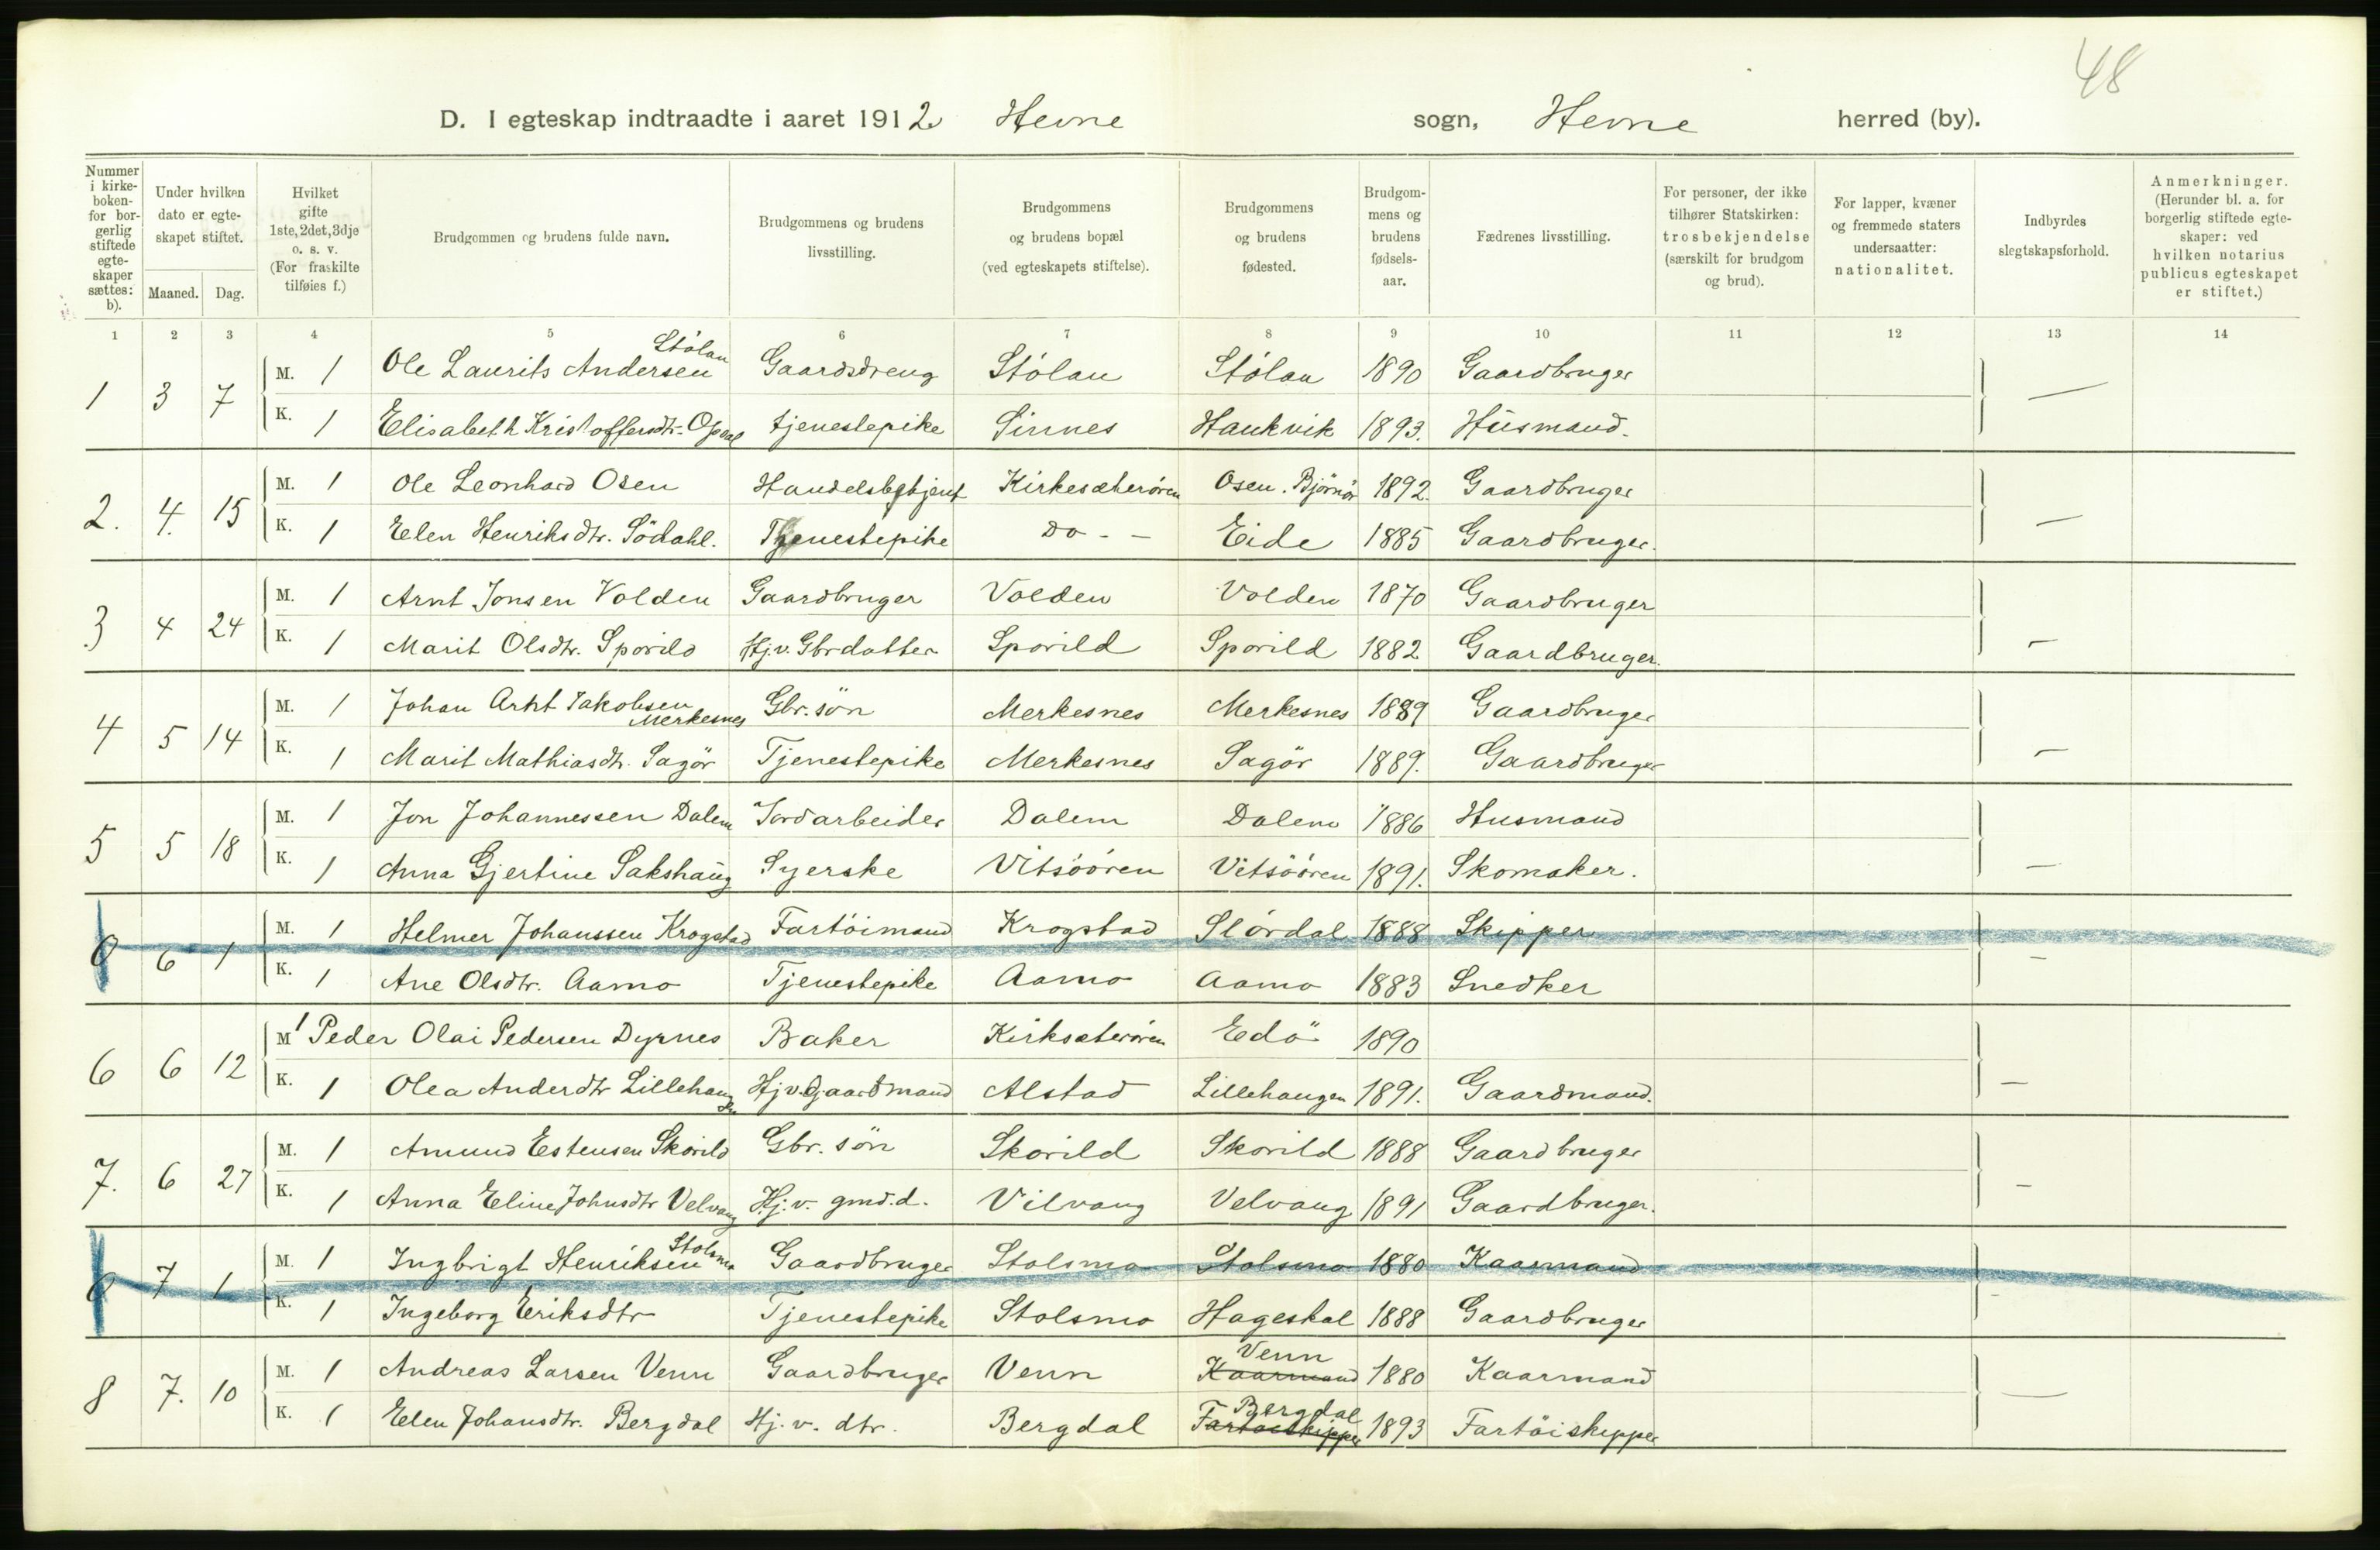 48
D. I egteskap indtraadte i aaret 1912 Hevne sogn, Hevne herred (by).
Nummer i kirkeboken- for borgerlig stiftede egteskaper sættes: b).
Under hvilken dato er egteskapet stiftet.
Maaned. Dag.
Hvilket gifte 1ste, 2det, 3dje o. s. v. (For fraskilte tilføies f.)
Brudgommen og brudens fulde navn.
Brudgommens og brudens livsstilling.
Brudgommens og brudens bopæl (ved egteskapets stiftelse).
Brudgommens og brudens fødested.
Brudgommens og brudens fødselsaar.
Fædrenes livsstilling.
For personer, der ikke tilhører Statskirken: trosbekjendelse (særskilt for brudgom og brud).
For lapper, kvæner og fremmede staters undersaatter: nationalitet.
Indbyrdes slegtskapsforhold.
Anmerkninger. (Herunder bl. a. for borgerlig stiftede egteskaper: ved hvilken notarius publicus egteskapet er stiftet.)
1 2 3 4 5 6 7 8 9 10 11 12 13 14
1 3 7 M. 1 Ole Laurits Andersen Stölan Gaardsdreng Stölan Stölan 1890 Gaardbruger —
K. 1 Elisabeth Kristoffersdtr. Opdal tjenestepike Sinnes Haukvik 1893. Husmand.
2. 4. 15 M. 1 Ole Leonhard Osen Handelsbetjent Kirkesæterören Osen. Björnör 1892. Gaardbruger —
K. 1 Elen Henriksdtr. Södahl. Tjenestepike Do - - Eide 1885 Gaardbruger.
3 4 24 M. 1 Arnt Jonsen Volden Gaardbruger Volden Volden 1870 Gaardbruger —
K. 1 Marit Olsdtr. Sporild Hj.v. Gbrdatter Sporild Sporild 1882 Gaardbruger.
4 5 14 M. 1 Johan Arnt Jakobsen Merkesnes Gbr. sön Merkesnes Merkesnes 1889 Gaardbruger —
K. 1 Marit Mathiasdtr. Sagör Tjenestepike Merkesnes Sagör 1889. Gaardbruger
5 5 18 M. 1 Jon Johannessen Dalem Jordarbeider Dalem Dalem 1886 Husmand —
K. 1 Anna Gjertine Sakshaug Syerske Vitsöören Vitsöören 1891. Skomaker.
0 6 1 M. 1 Helmer Johanssen Krogstad Fartöimand Krogstad Slördal 1888 Skipper —
K. 1 Ane Olsdtr. Aamo Tjenestepike Aamo Aamo 1883 Snedker
6 6 12 M 1 Peder Olai Pedersen Dyrnes Baker Kirksæterören Edö 1890 —
K. 1 Olea Andersdtr Lillehaugen Hj v. Gjaardmand Alstad Lillehaugen 1891. Gaardmand.
7. 6 27 M. 1 Amund Estensen Skorild Gbr. sön Skorild Skorild 1888 Gaardbruger —
K. 1 Anna Eline Johnsdtr Velvang Hj. v. gmd.d. Vilvang Velvang 1891 Gaardbruger.
0 7 1 M. 1 Ingbrigt Henriksen Stolsmo Gaardbruger Stolsmo Stolsmo 1880 Kaarmand -
K. 1 Ingeborg Eriksdtr Tjenestepike Stolsmo Hageskal 1888 Gaardbruger
8 7. 10 M. 1 Andreas Larsen Venn Gaardbruger Venn Kaarmand Venn 1880 Kaarmand —
K. 1 Elen Johansdtr. Bergdal Hj. v. dtr. Bergdal Fartöiskipper Bergdal 1893 Fartöiskipper